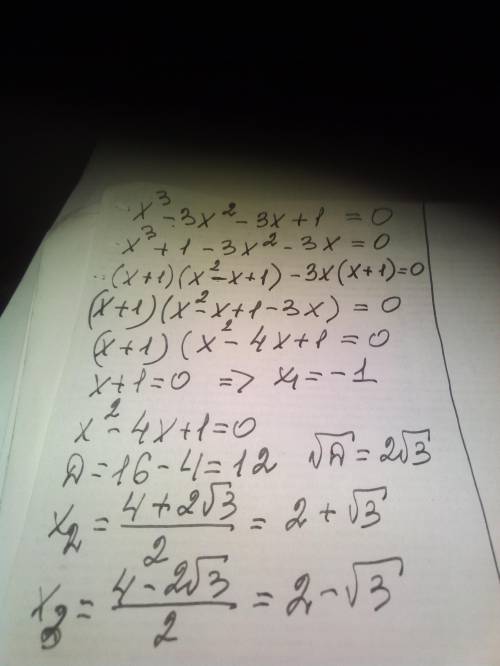 x³ - 3x² - 3x + 1 = 0
x³ + 1 - 3x² - 3x = 0
(x+1)(x² - x + 1) - 3x(x+1) = 0
(x+1)(x² - x + 1 - 3x) = 0
(x+1)(x² - 4x + 1 = 0
x + 1 = 0 => x₁ = -1
x² - 4x + 1 = 0
D = 16 - 4 = 12 √D = 2√3
x₂ = (4 + 2√3)/2 = 2 + √3
x₃ = (4 - 2√3)/2 = 2 - √3